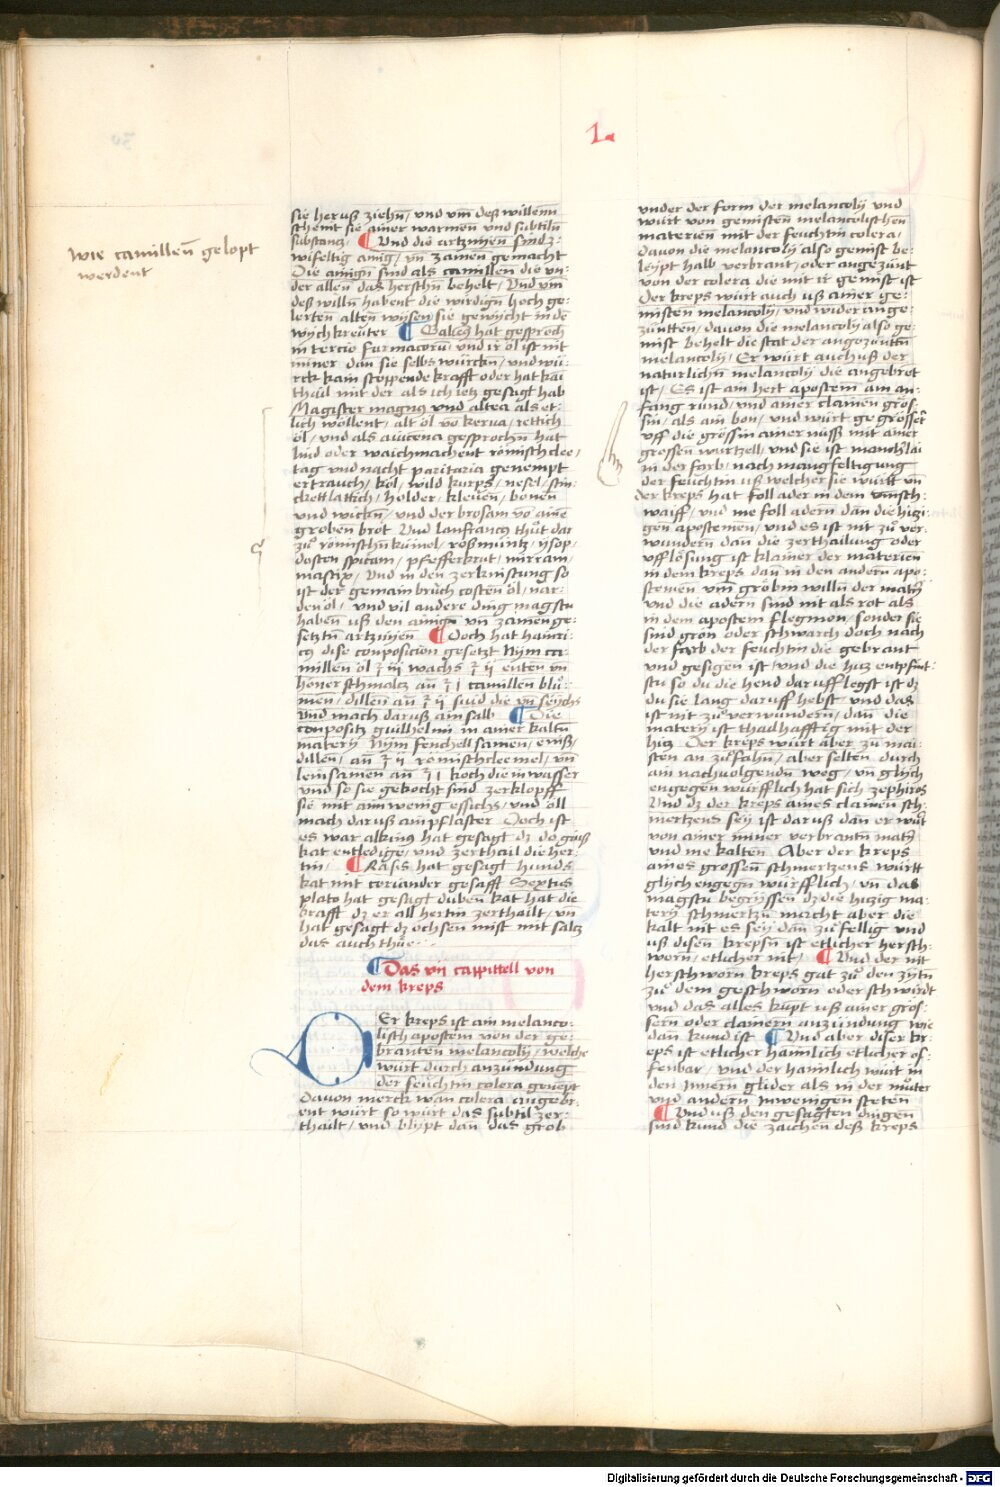 1a
wie camillen̄ gelopt
werdent
sie her uß ziehn̄ / vnd vm̄ deß willenn
scheint sie ainer warmen vnd subtiln̄
substantz / ¶ Vnd die artzmyen sind z:
wifeltig ainig / vn̄ zamen gemacht
Die ainign̄ sind als camillen die vn:
der allen das herschn̄ behelt / Vnd vm
deß willn̄ habent die wirdign̄ hoch ge:
lerten alten wysen sie gewycht in de
wych kreuter ¶ Galieꝰ hat gesproch
in tercio farmacorū / vnd ir öl ist nit
miner dan sie selbs würckn̄ / vnd wü:
rck kain stoppende krafft oder hat kai
thail mit der als ich ietz gesagt hab
Magister magnꝰ vnd altea als et:
lich wollent / alt öl vō kerua / rettich
öl / vnd als auicena gesprochn̄ hat
lind oder waichmachent römisch clee /
tag vnd nacht paritaria genempt
ertrauch / köl / wild kurps / nesel / stin:
ckett lattich / holder / kleuen / bonen
vnd wickn̄ / vnd der brosam vō aine
groben brot Vnd lanfrancꝰ thůt dar
zů römischn̄ kümel / roßmüntz / ysop /
dosten spicam / pfefferkrut / mirram /
mastix / Vnd in den zerknistung so
ist der gemain brüch costen öl / nar:
den öl / vnd vil andere ding magstu
haben uß den ainign̄ vn̄ zamen ge:
setztn̄ artzmyen ¶ Doch hat hainri:
cꝰ dise conposicion gesetzt Nym ca:
millen öl ℥ iii wachs ℥ ii enten vn̄
höner schmaltz an̄ ℥ i camillen blů:
men / dillen / an̄ ℥ ii süid die vn̄ seychs
vnd mach daruß ain salb ¶ Die
conpositz guilhelmi in ainer kaltn̄
matery Nym fenchell samen / eniß /
dillen / an̄ ℥ ii römisch clee mel / vn̄
leinsamen an̄ ℥ i koch die in wasser
vnd so sie gekocht sind zerklopff
sie mit ain wenig essichs / vnd öll
mach daruß ain pflaster Doch ist
es war alkinꝰ hat gesagt dz do genß
kat entledige / vnd zerthail die her:
tin / ¶ Rasis hat gesagt hunds
kat mit coriander gesafft Sextus
plato hat gesagt duben kat hat die
krafft dz er all hertin zerthailt / vn̄
hat gesagt dz ochsen mist mit saltz
das auch thüe
¶ Das vii cappittell von
dem kreps
DEr kreps ist ain melanco:
lisch apostem von der ge:
branten melancoly / welche
würt durch anzündung
der feuchtin colera genept
Davon merck wan colera angebr:
ent würt so würt das subtil zer:
thailt / vnd blypt dan das grob
vnder der form der melancoly vnd
würt von gemisten melancolischen
materien mit der feuchtin colera /
davon die melancoly also gemist be:
leypt halb verbrant / oder angezünt
von der colera die mit ir gemist ist
Der kreps würt auch uß ainer ge:
misten melancoly / vnd wider ange:
züntten / davon die melancoly also ge:
mist behelt die stat der angezöntn̄
melancoly / Er würt auch uß der
naturlichn̄ melancoly die angebret
ist / Es ist ain hert apostem am an:
fang rund / vnd ainer clainen grös:
sin / als ain bon / vnd würt ge grösser
vff die grössin ainer nuß mit ainer
grossen wurtzell / vnd sie ist mancherlai
in der farb / nach mangfeltigung
der feuchtin uß welcher sie württ vn̄
der kreps hat foll ader in dem vmsch:
waiff / vnd me foll adern dan die hizi:
gen apostemen / vnd es ist nit zů ver:
wundern̄ dan die zerthailung oder
vfflösung ist klainer der materien
in dem kreps dan̄ in den andern apo:
stemen vm̄ gröbin willn̄ der mat̄y
vnd die adern sind nit als rot als
in dem apostem flegmon / sonder sie
sind grön oder schwarch doch nach
der farb der feuchtin die gebrant
vnd gesigen ist / vnd die hitz entpfint:
stu so du die hend daruff legst ist dz
du sie lang daruff hebst vnd das
ist nit zů verwundern̄ / dan̄ die
matery ist thad hafftig mit der
hitz Der kreps würt aber zů mai:
sten an zůfahn̄ / aber selten durch
ain nachuolgendn̄ weg / vn̄ glych
engegen würfflich hat sich zephiros
Vnd dz der kreps aines clainen sch:
mertzens sey ist daruß dan er würt
von ainer miner verbrantn̄ mat̄y
vnd me kalten Aber der kreps
aines grossen̄ schmertzens württ
glych engegn̄ würfflich / vn̄ das
magstu begryssen dz die hizig ma:
tery schmertzn̄ macht aber die
kalt nit es sey dan zů fellig vnd
uß disen krepsn̄ ist etlicher hersch:
worn / etlicher nit / ¶ Vnd der nit
herschworn kreps gat zů den zytn̄
zů dem geschworn oder schwirdt
vnd das alles kupt uß ainer grös:
sern̄ oder clainern anzündung wie
dan kund ist ¶ Vnd aber diser kr:
eps ist etlicher hainlich etlicher of:
fenbar / vnd der hainlich würt in
den innern glider als in der můter
vnd andern inwenigen stetten
¶ Vnd uß den gesagten dingen
sind kund die zaichen deß kreps
Digitalisierung gefördert durch die Deutsche Forschungsgemeinschaft - DFG